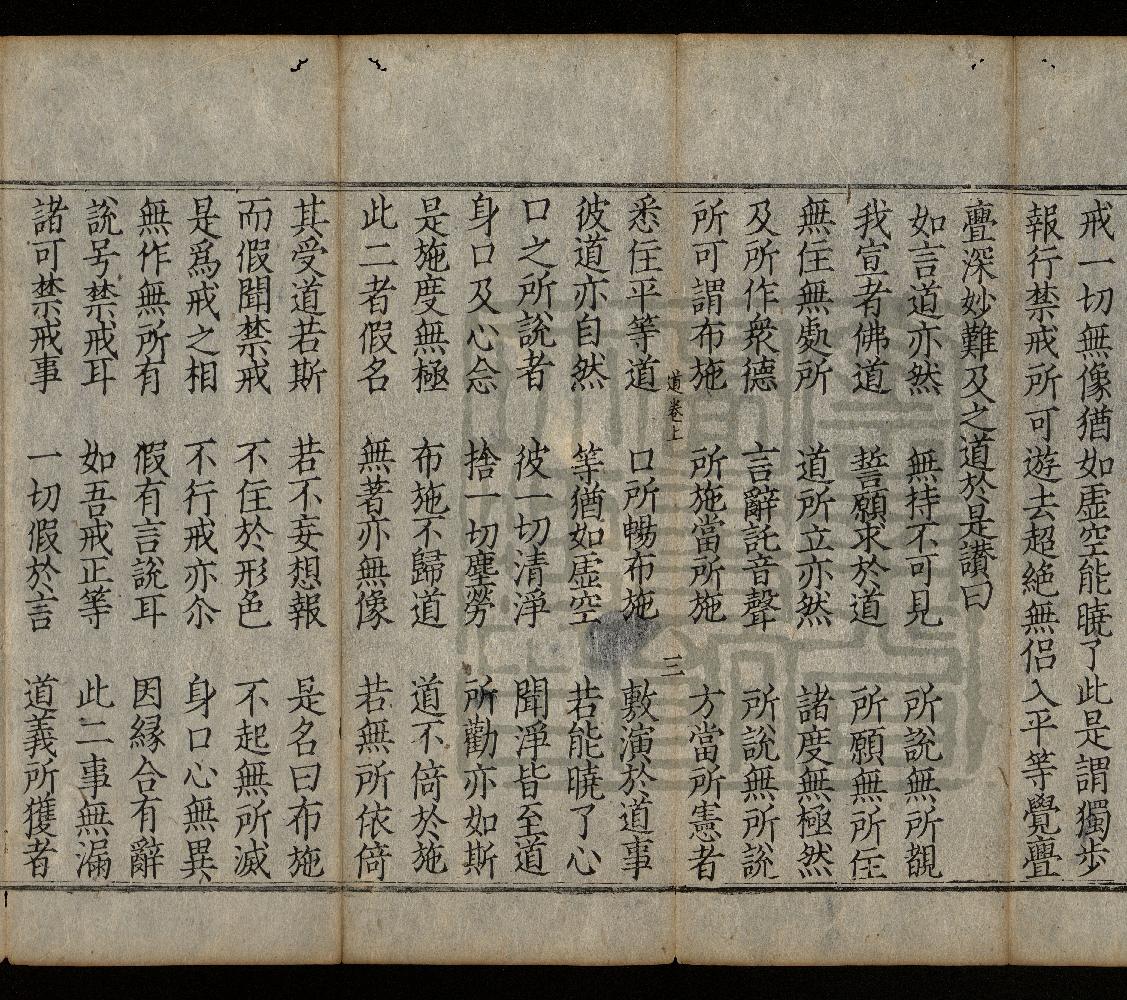 戒一切無像猶如虛空能曉了此是謂獨步
報行禁戒所可遊去超絕無侶入平等覺亹
亹深妙難及之道於是讃曰
如言道亦然　無持不可見　所說無所覩
我宣者佛道　誓願求於道　所願無所住
無住無處所　道所立亦然　諸度無極然
及所作衆德　言辭託音聲　所說無所說
所可謂布施　所施當所施　方當所憲者
道卷上　三
悉住平等道　口所暢布施　敷演於道事
彼道亦自然　等猶如虛空　若能曉了心
口之所說者　彼一切清淨　聞淨皆至道
身口及心念　捨一切塵勞　所勸亦如斯
是施度無極　布施不歸道　道不倚於施
此二者假名　無著亦無像　若無所依倚
其受道若斯　若不妄想報　是名曰布施
而假聞禁戒　不住於形色　不起無所滅
是爲戒之相　不行戒亦尒　身口心無異
無作無所有　假有言說耳　因緣合有辭
說号禁戒耳　如吾戒正等　此二事無漏
諸可禁戒事　一切假於言　道義所獲者